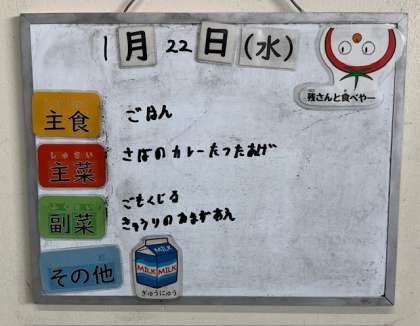 1月22日(水)
残さんと食べやー
主食
ごはん
しゅさい
主菜
さばのカレーたつたあげ
副菜
ごもくじる
きゅうりのあまずあえ
その他
MILK MILK
ぎゅうにゅう